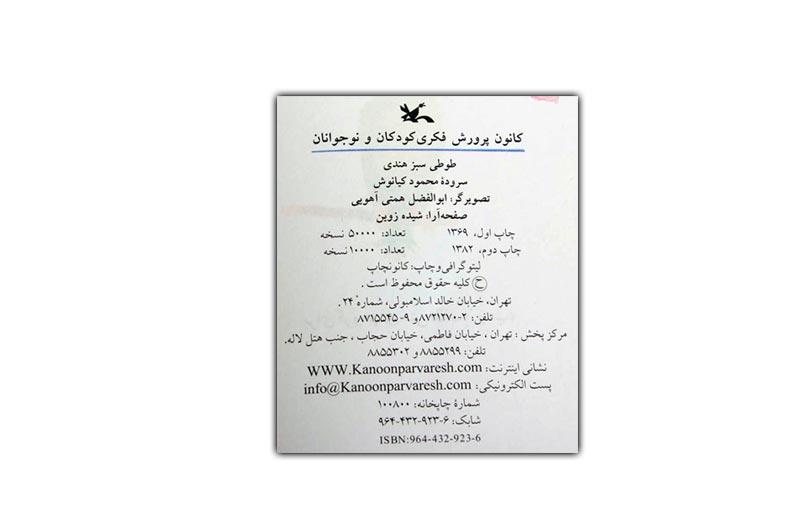 کانون پرورش فکری کودکان و نوجوانان
طوطی سبز هندی
سرودهٔ محمود کیانوش
تصویرگر: ابوالفضل همتی آهویی
صفحه‌آرا: شیده زوین
چاپ اول، ۱۳۶۹ تعداد: ۵۰۰۰۰ نسخه
چاپ دوم، ۱۳۸۲ تعداد: ۱۰۰۰۰ نسخه
لیتوگرافی و چاپ: کانونچاپ
ح کلیه حقوق محفوظ است .
تهران، خیابان خالد اسلامبولی، شمارهٔ ۲۴.
تلفن: ۲-۸۷۲۱۲۷۰ و ۹-۸۷۱۵۵۴۵
مرکز پخش : تهران ، خیابان فاطمی، خیابان حجاب ، جنب هتل لاله.
تلفن: ۸۸۵۵۲۹۹ و ۸۸۵۵۳۰۲
نشانی اینترنت: WWW.Kanoonparvaresh.com
پست الکترونیکی: info@Kanoonparvaresh.com
شمارهٔ چاپخانه: ۱۰۰۸۰۰
شابک: ۶-۹۲۳-۴۳۲-۹۶۴
ISBN:964-432-923-6